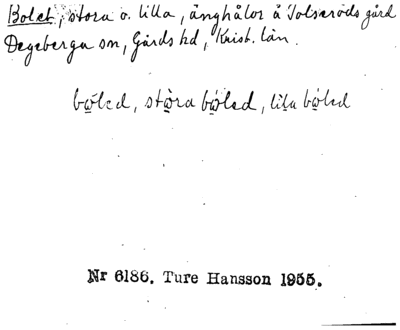 Bolet, stora o. lilla, änghålor å Tolseröds gård
Degeberga sn, Gärds hd, Krist. län.
bo̤led, sto̤ra bo̤led, lila bo̤led
Nr 6186. Ture Hansson 1955.